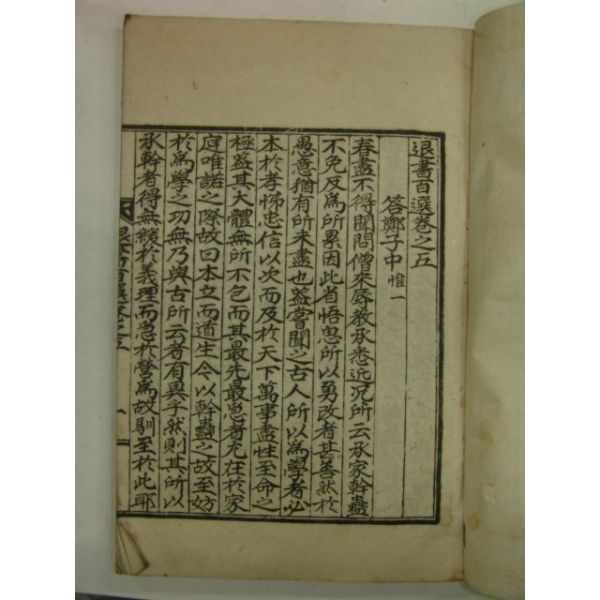 退書百選卷之五
答鄭子中惟一
春盡不得聞問僧來辱教承悉近况所云承家幹蠱
不免反爲所累因此省悟思所以勇改者甚善然於
愚意猶有所未盡也盖嘗聞之古人所以爲學者必
本於孝悌忠信以次而及於天下萬事盡性至命之
極盖其大體無所不包而其最先最急者尤在於家
庭唯諾之際故曰本立而道生今以幹蠱之故至妨
於爲學之功無乃與古所云者有異乎然則其所以
承幹者得無緩於義理而急於營爲故馴至於此耶
退書百選卷之五
一